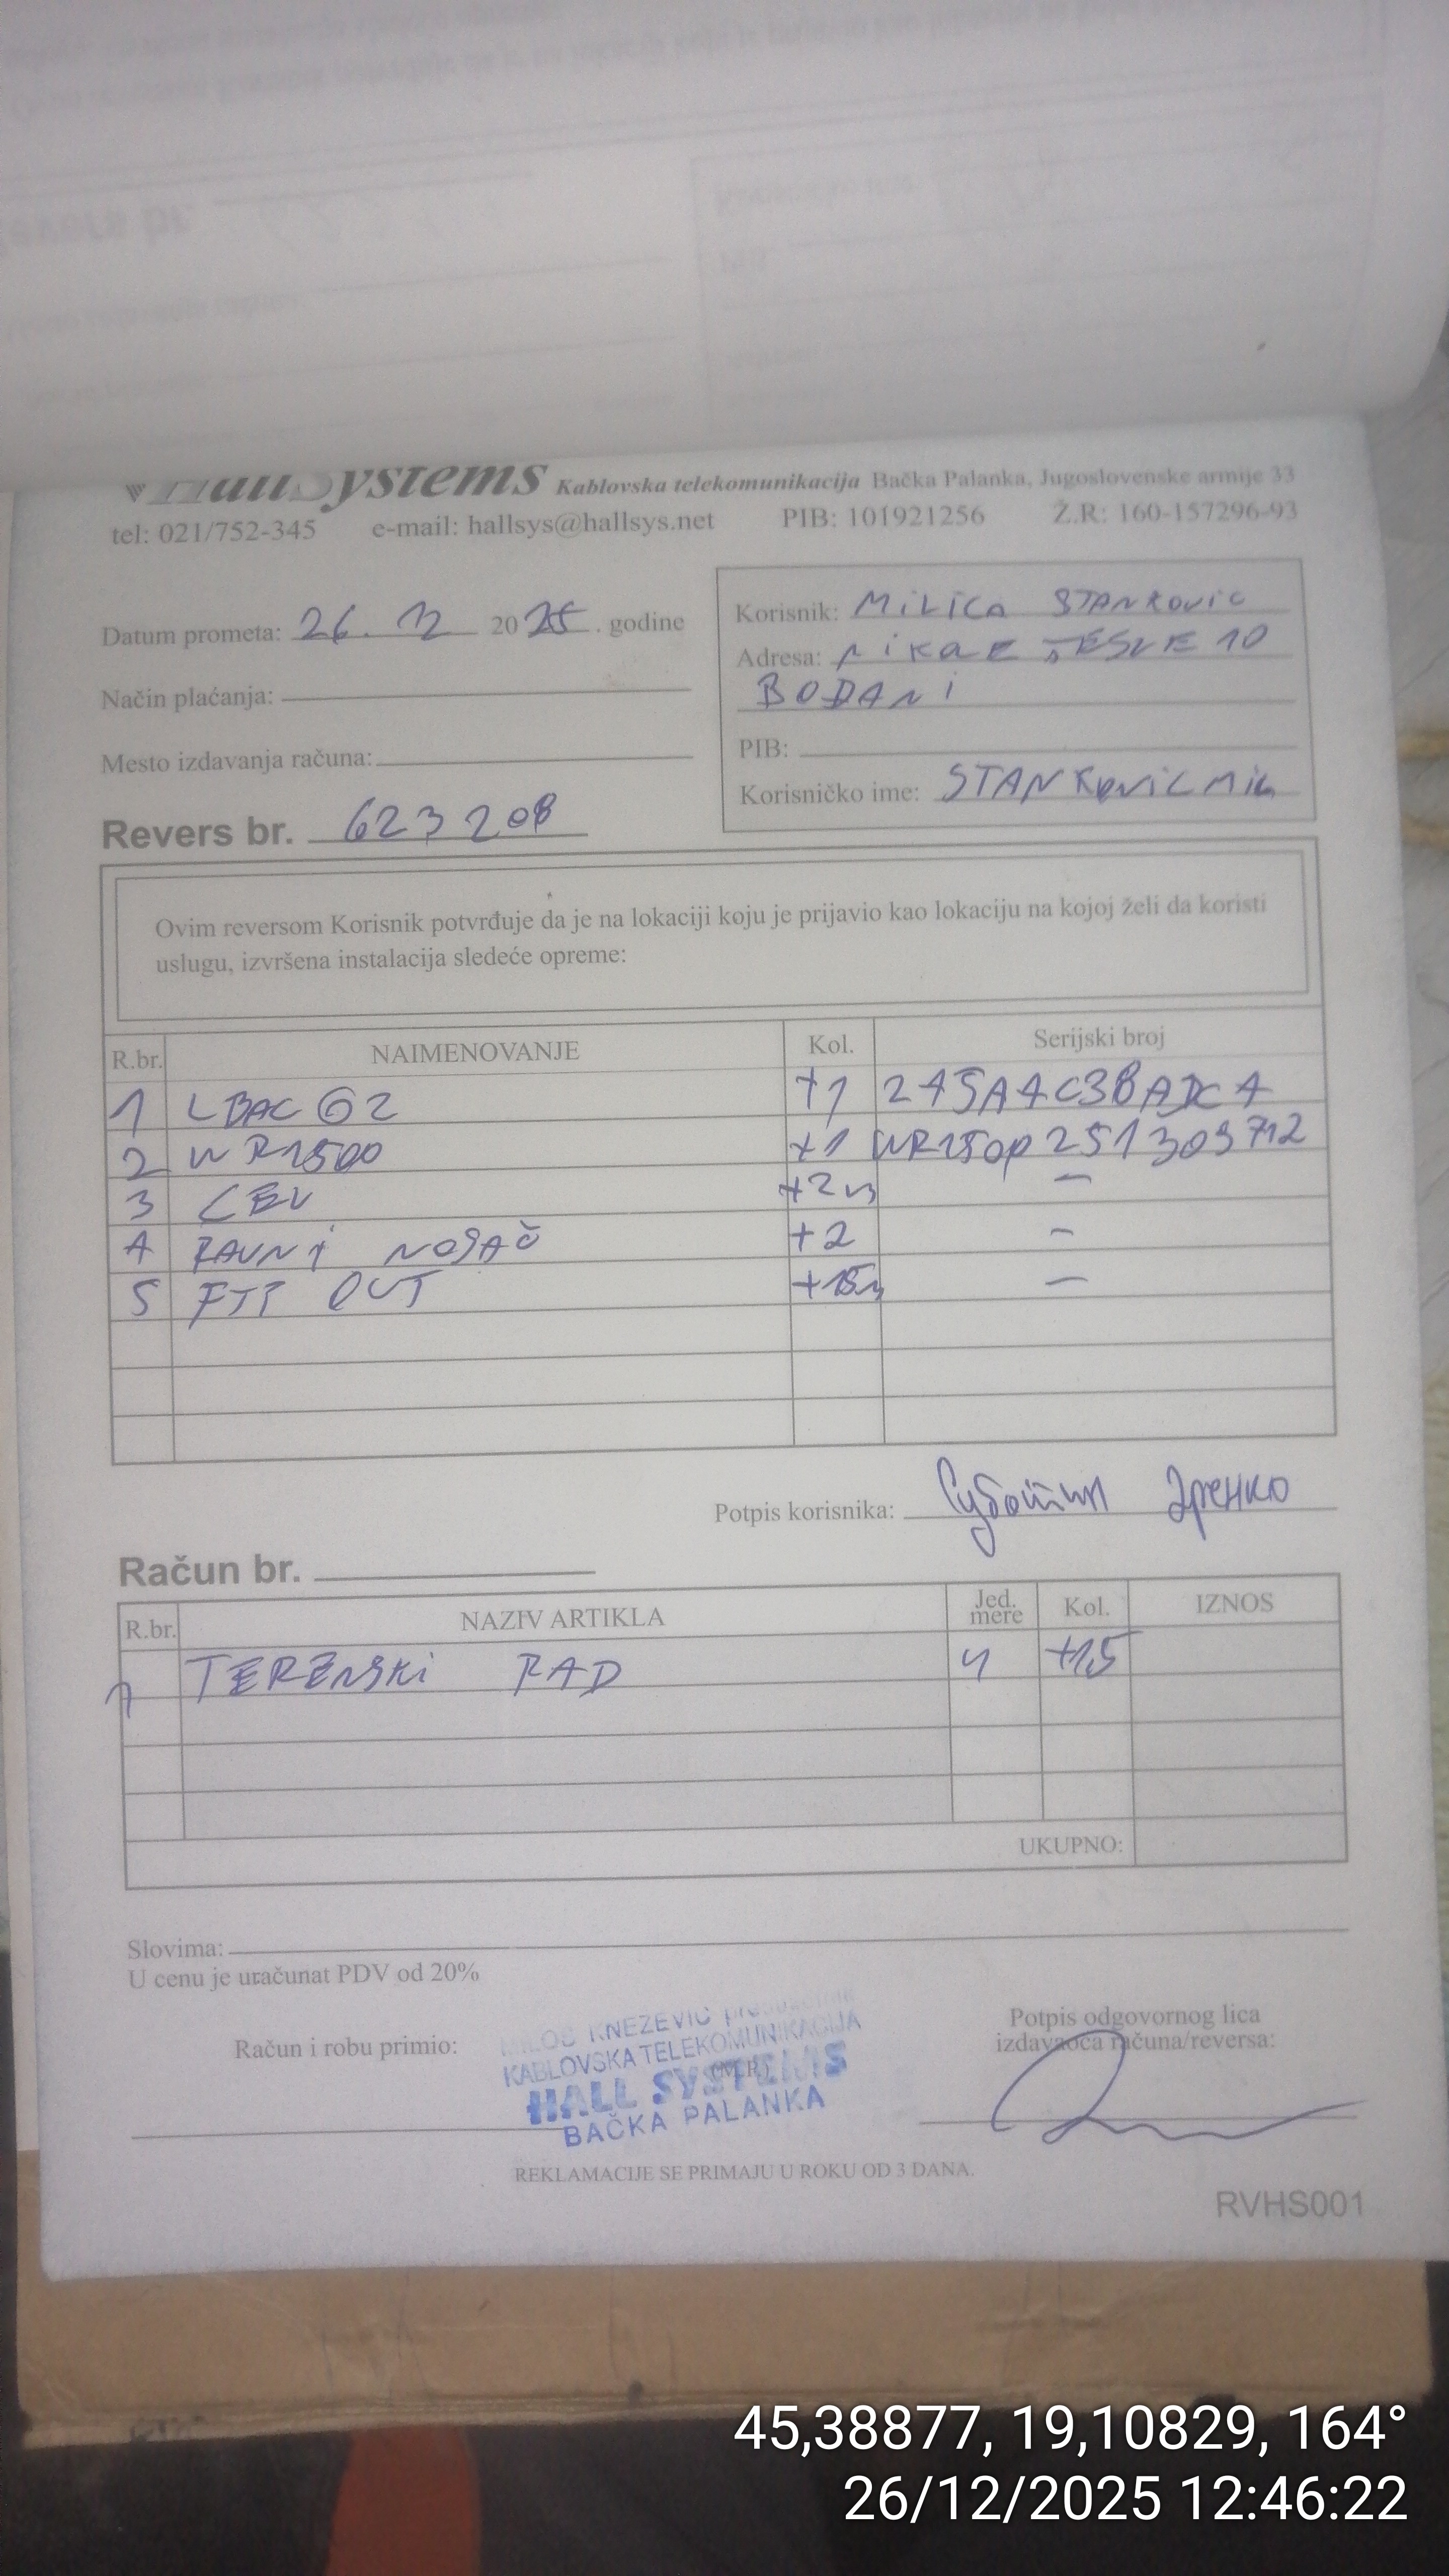 HallSystems Kablovska telekomunikacija Bačka Palanka, Jugoslovenske armije 33
tel: 021/752-345 e-mail: hallsys@hallsys.net PIB: 101921256 Ž.R: 160-157296-93
Datum prometa: 26. 12 2025. godine
Način plaćanja:
Mesto izdavanja računa:
Revers br. 623208
Korisnik: MILICA STANKOVIC
Adresa: NIKOLE TESLE 10
BOĐANI
PIB:
Korisničko ime: STANKOVICMIL
Ovim reversom Korisnik potvrđuje da je na lokaciji koju je prijavio kao lokaciju na kojoj želi da koristi
uslugu, izvršena instalacija sledeće opreme:
R.br. NAIMENOVANJE Kol. Serijski broj
1 LBAC G2 +1 245A4C38ADC4
2 WR1500 +1 WR150P251309712
3 CEV +2m –
4 RAVNI NOSAČ +2 –
5 FTP OUT +15m –
Potpis korisnika: Суботин Зренко
Račun br.
R.br. NAZIV ARTIKLA Jed. mere Kol. IZNOS
1 TERENSKI RAD h +1,5
UKUPNO:
Slovima:
U cenu je uračunat PDV od 20%
Račun i robu primio:
MILOŠ KNEŽEVIĆ
KABLOVSKA TELEKOMUNIKACIJA
(M.P.)
HALL SYSTEMS
BAČKA PALANKA
Potpis odgovornog lica
izdavaoca računa/reversa:
REKLAMACIJE SE PRIMAJU U ROKU OD 3 DANA.
RVHS001
45,38877, 19,10829, 164°
26/12/2025 12:46:22